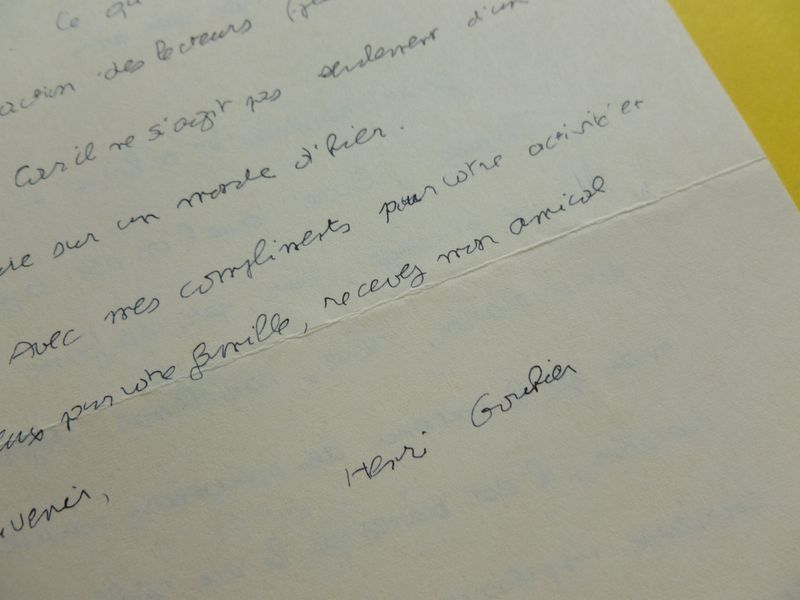 Ce qu
action des lecteurs
Car il ne s'agit pas seulement d'un
sur un monde d'hier.
Avec mes compliments pour votre activité et
pour votre famille, recevez mon amical
venir,
Henri Gouhier